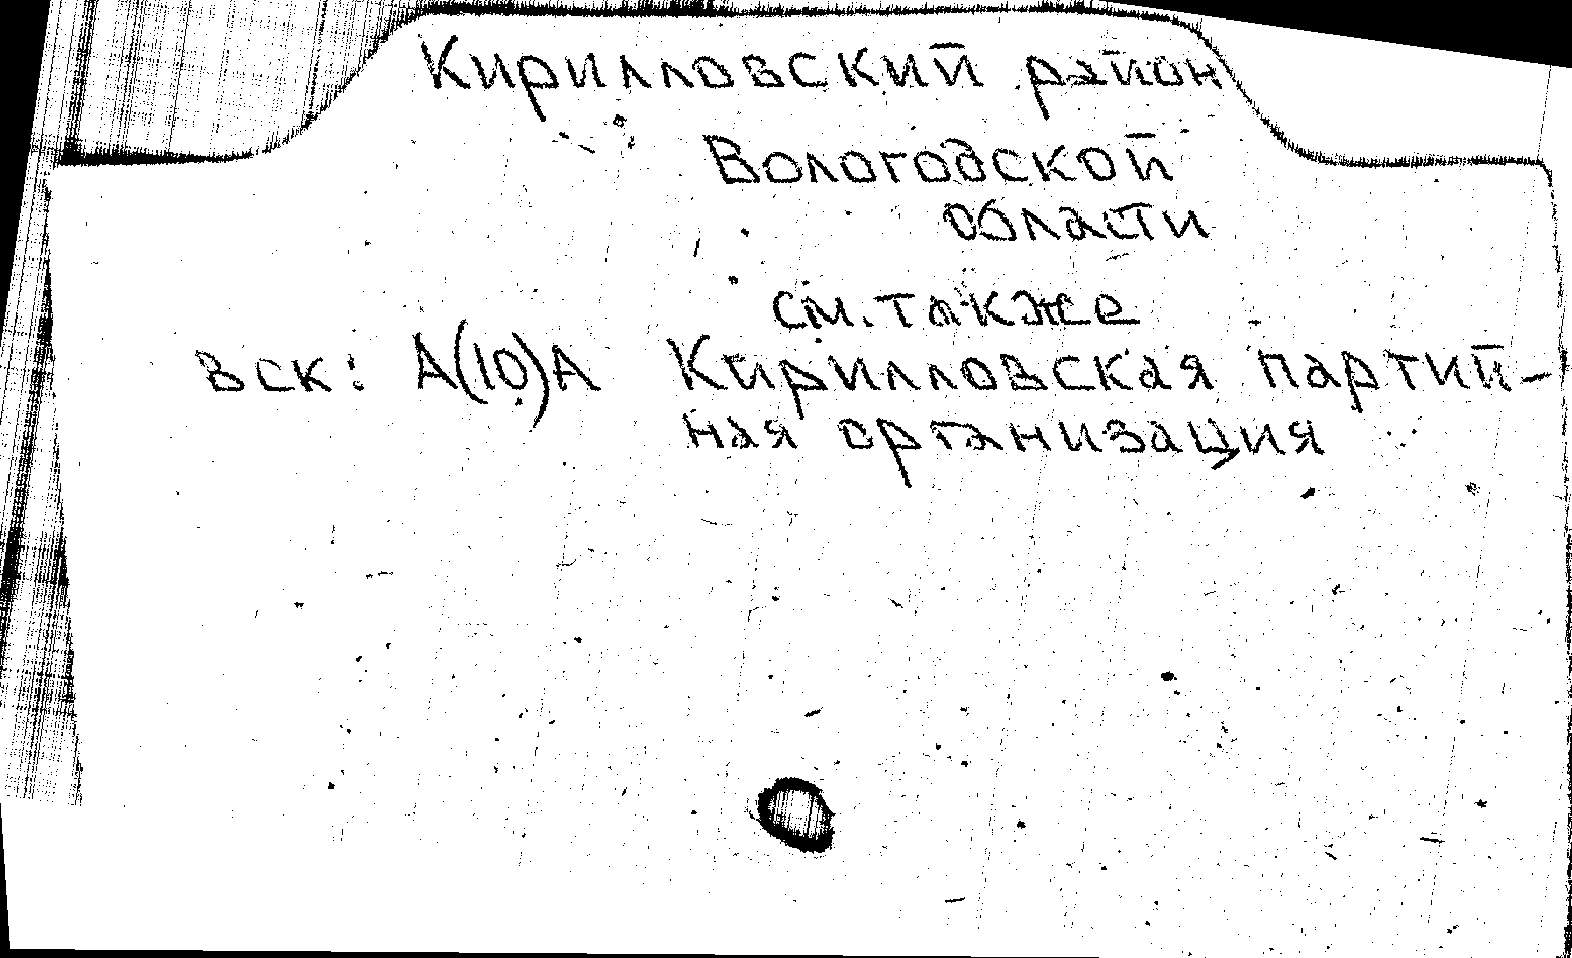 Кирилловский район
Вологодской
области
см. также
вск: А(10)А Кирилловская партий-
ная организация